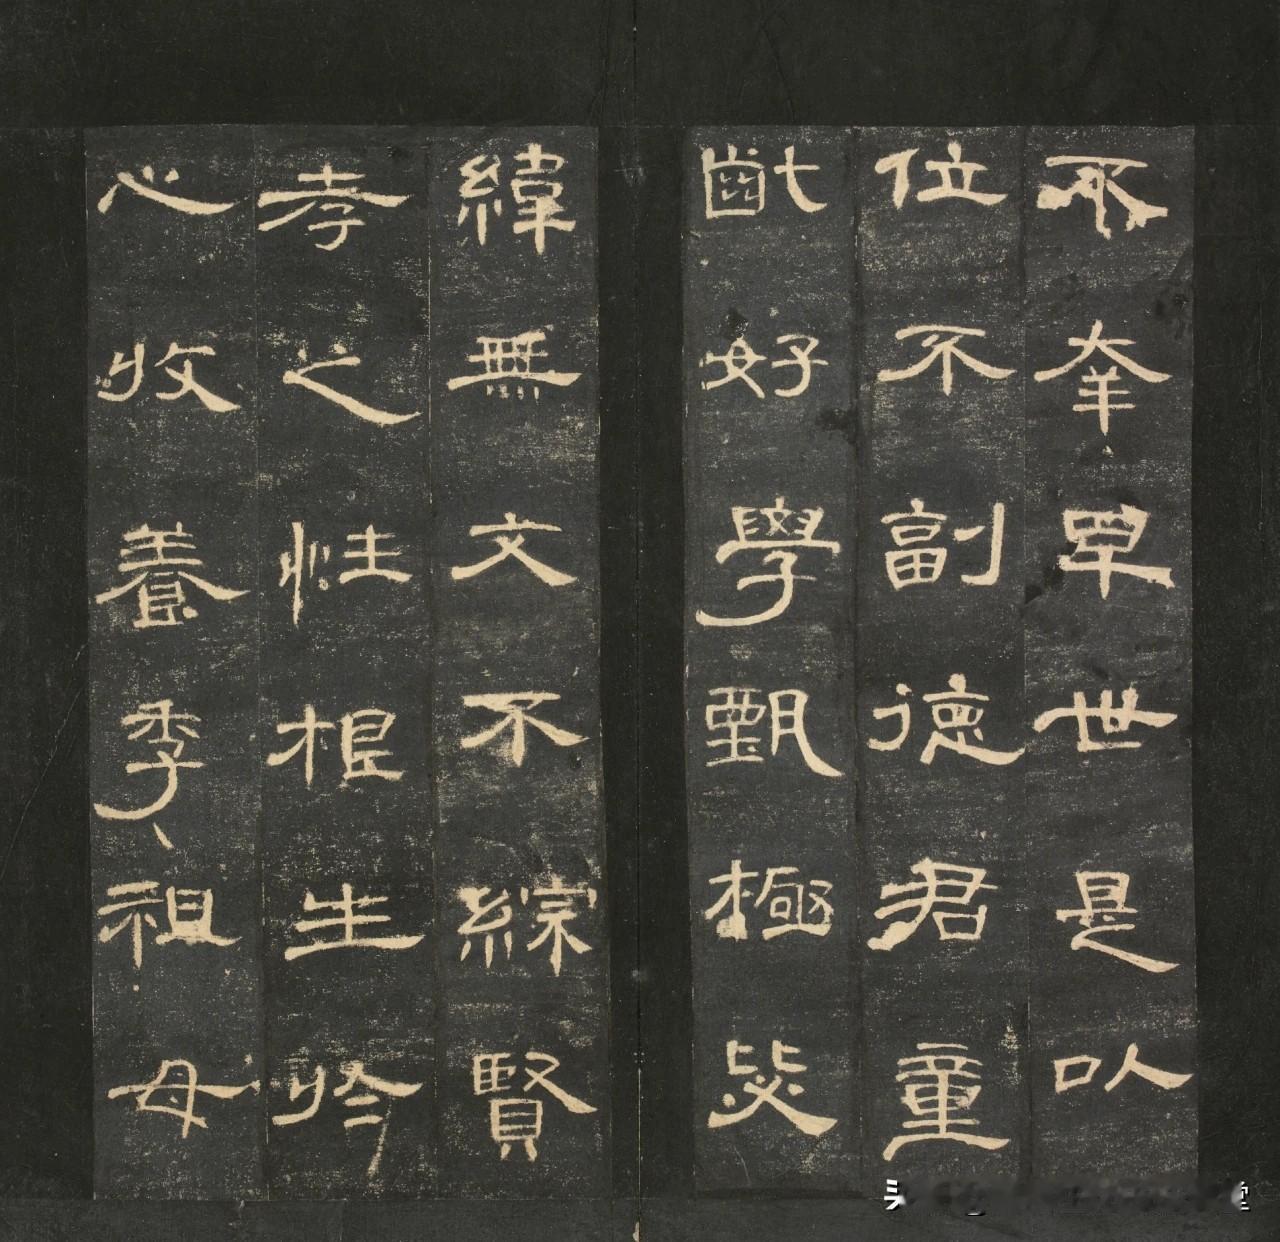 不幸早世是以
位不副德君童
齔好學甄極毖
緯無文不綜賢
孝之性根生於
心收養季〻祖母